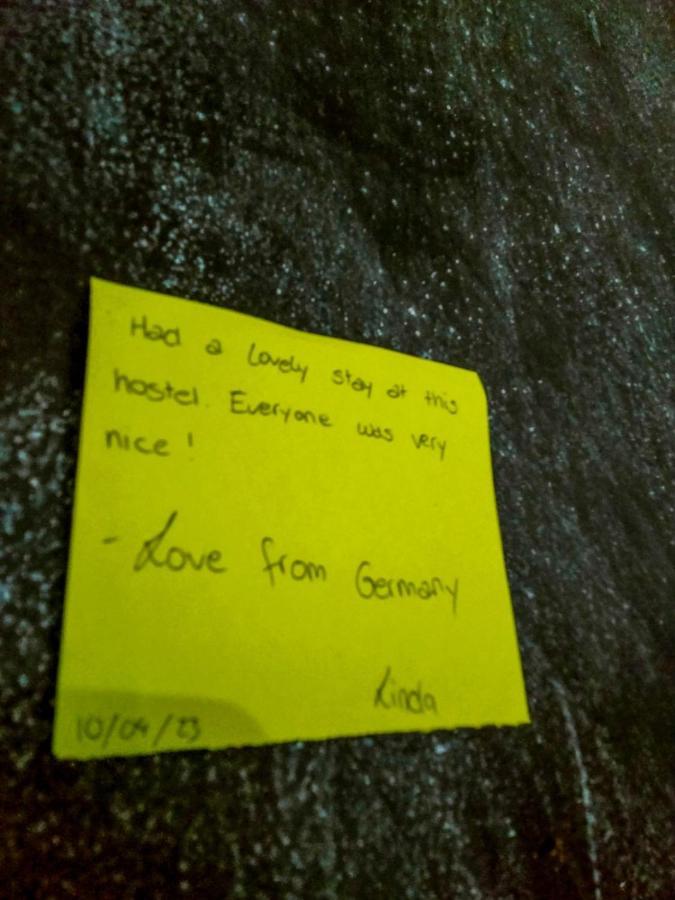 Had a lovely stay at this
hostel. Everyone was very
nice!
- Love from Germany
Linda
10/04/23